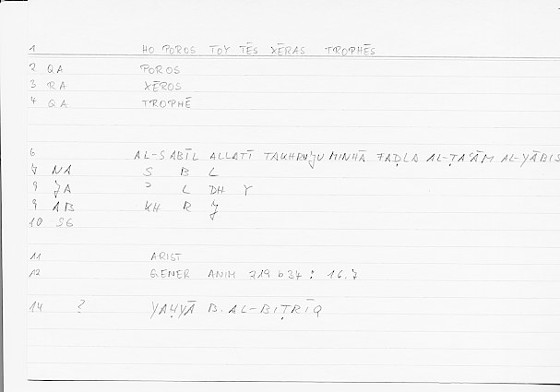 1 HO POROS TOY TĒS XĒRAS TROPHĒS
2 QA POROS
3 RA XĒROS
4 QA TROPHĒ
6 AL-SABĪL ALLATĪ TAKHRUǦU MINHĀ FAḌLA AL-ṬAʿĀM AL-YĀBIS
7 NA S B L
9 ǦA ʾ L DH Y
9 AB KH R Ǧ
10 SG
11 ARIST
12 GENER ANIM 719 b 34 : 16.7
14 ? YAḤYĀ B. AL-BIṬRĪQ